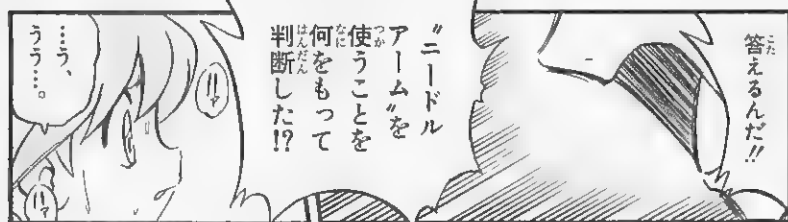 答えるんだ!!
〝ニードル
アーム〟を
使うことを
何をもって
判断した!?
…う、
うう…。